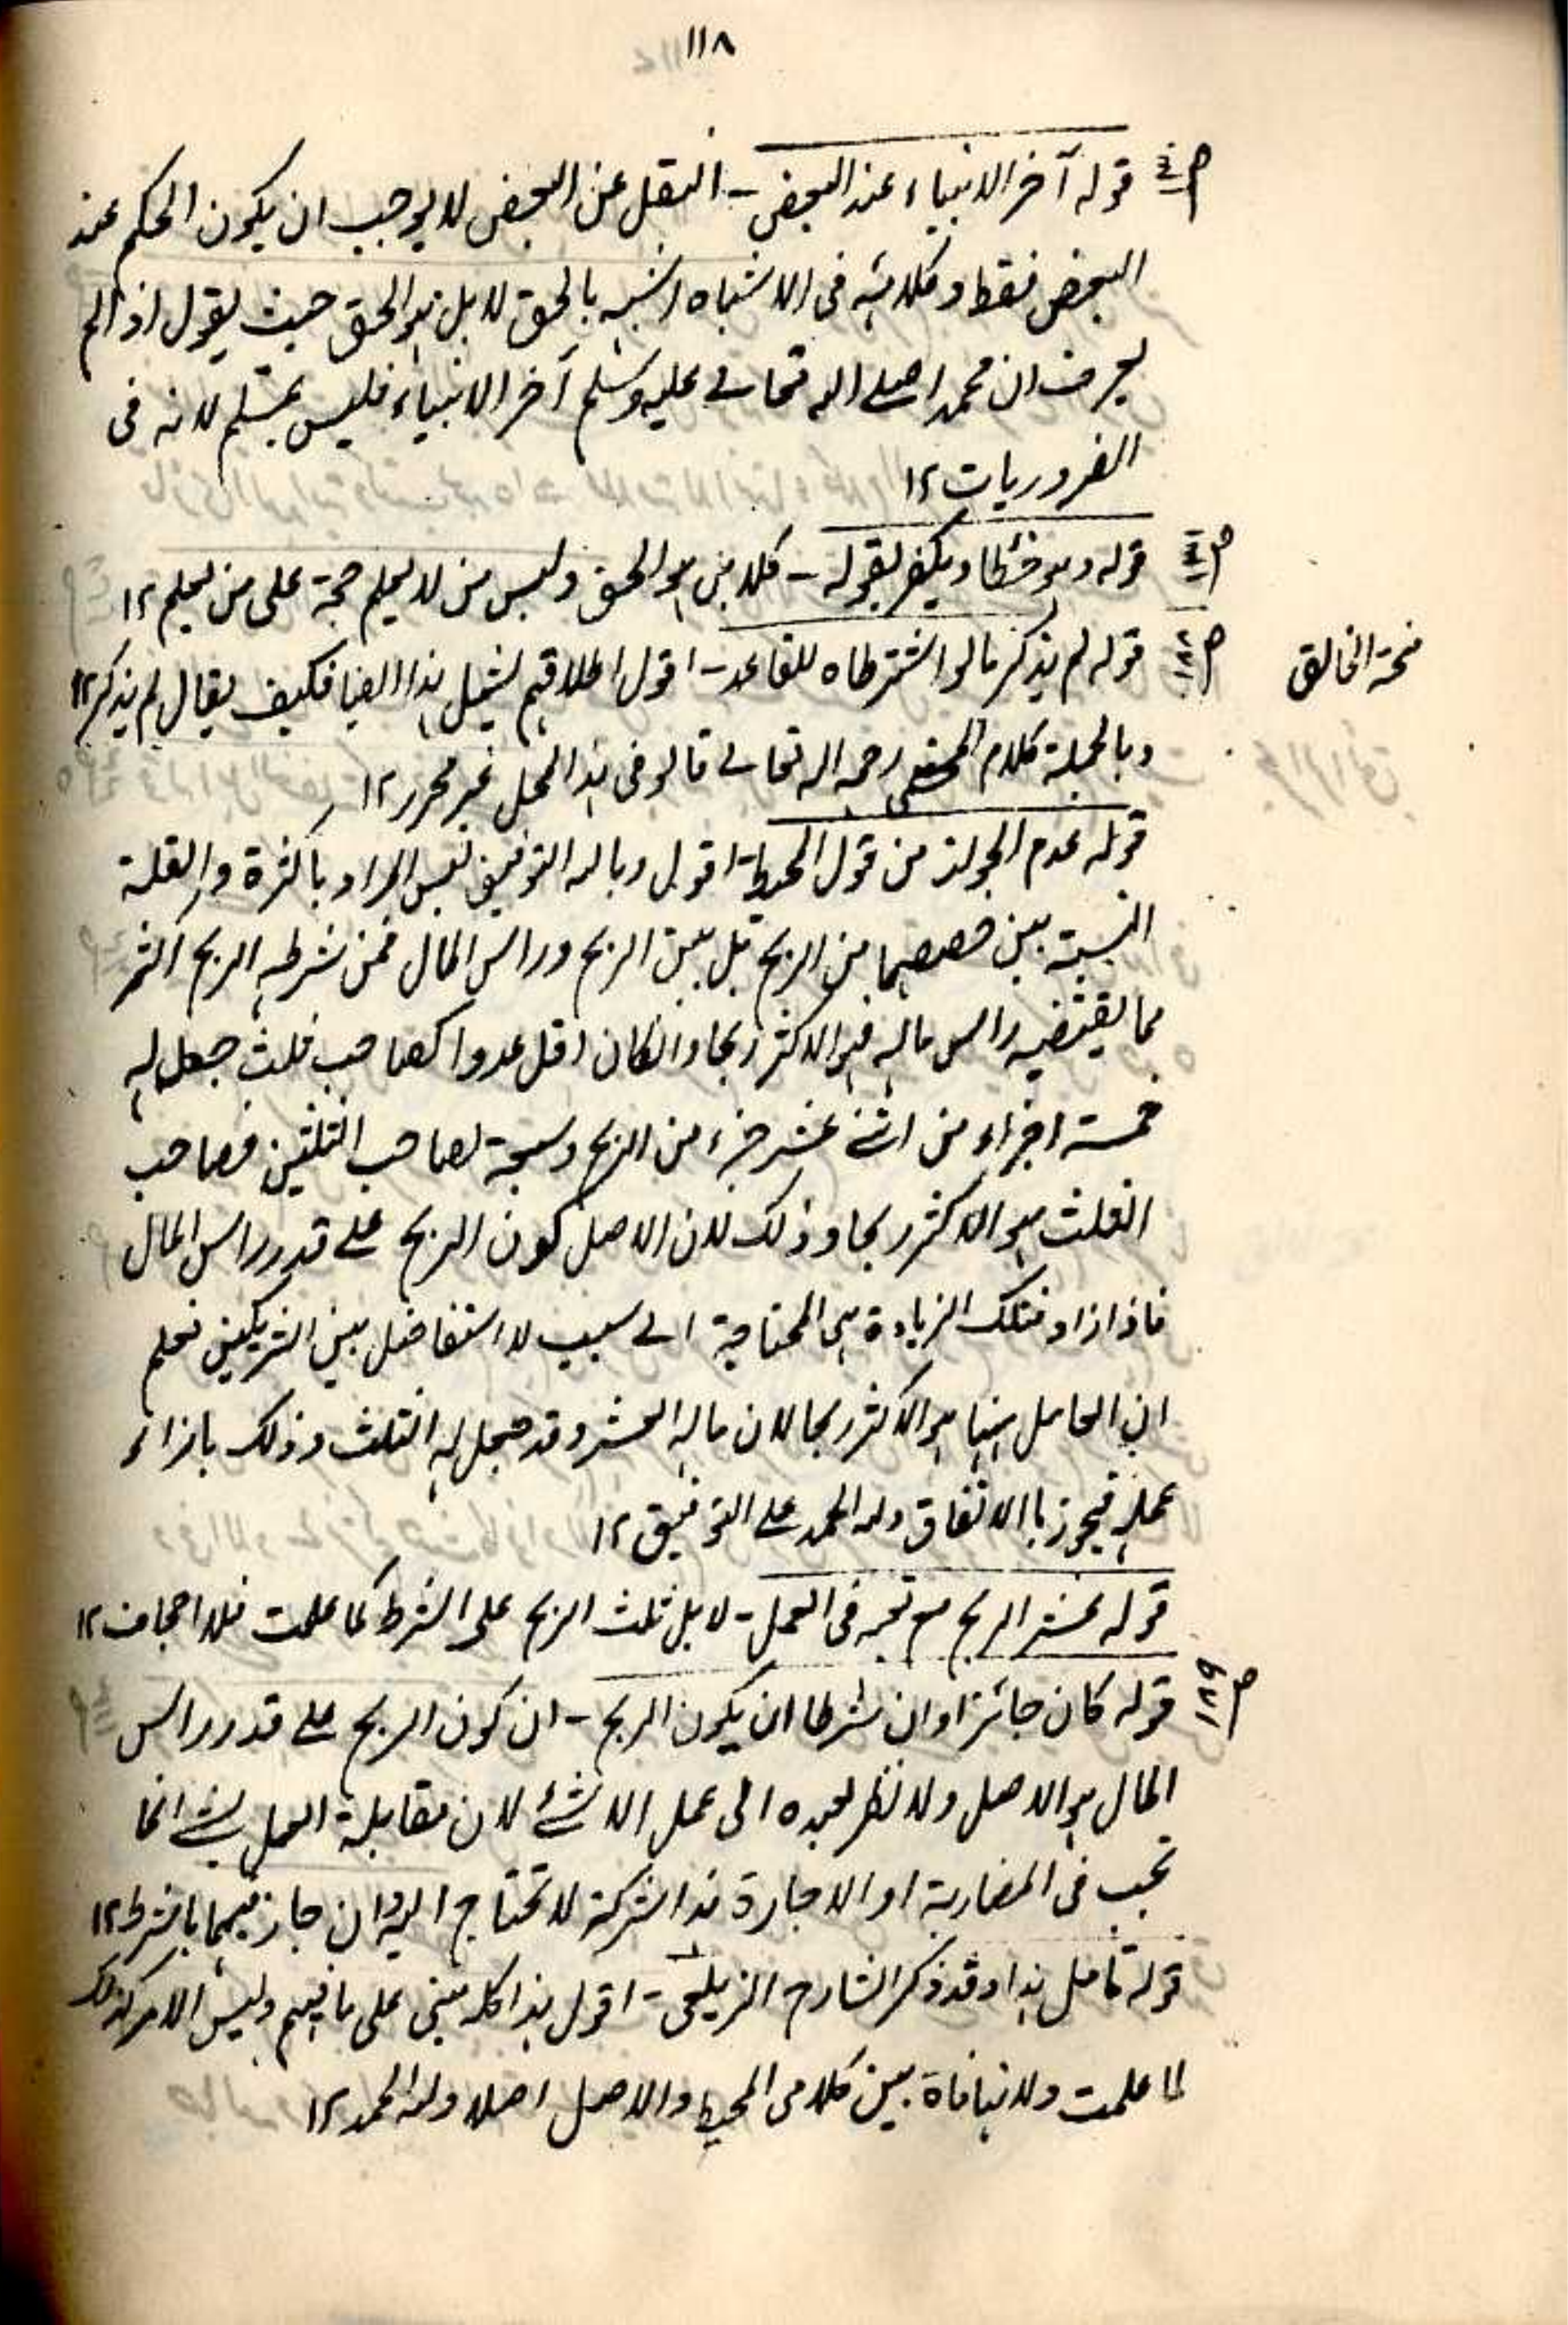 ١١٨
قوله آخر الانبياء عند البعض ـ النقل عن البعض لا يوجب ان يكون الحكم عند
البعض فقط وكلامه فى الاشباه اشبه بالحق لا بل هو الحق حيث يقول اذا لم
يعرف ان محمدا صلے الله تعالے عليه وسلم آخر الانبياء فليس بمسلم لانه فى
الضروريات ١٢
قوله وهو خطا ويكفر بقوله ـ كلا بل هو الحق وليس من لا يعلم حجة على من يعلم ١٢
منحة الخالق
ص١٨٨ قوله لم يذكر ما لو اشترطاه للقاعد ـ اقول اطلاقهم يشمل هذا ايضا فكيف يقال لم يذكر ١٢
وبالجملة كلام المحشى رحمه الله تعالے قالو فى هذا المحل غير محرر ١٢
قوله عدم الجواز من قول المحيط اقول وبالله التوفيق ليس المراد باكثرة والقلة
النسبة بين حصصهما من الربح بل بين الربح وراس المال فمن شرط له الربح اكثر
مما يقتضيه راس ماله فهو الاكثر ربحا وانكان اقل عددا كصاحب ثلث جعل له
خمسة اجزاء من اثنے عشر جزء من الربح وسبعة لصاحب الثلثين فصاحب
الثلث هو الاكثر ربحا وذلك لان الاصل كون الربح علے قدر راس المال
فاذا زاد فتلك الزيادة هى المحتاجة الے سبب لا استفاضل بين الشريكين فعلم
ان العامل ههنا هو الاكثر ربحا لان ماله العشر وقد جعل له الثلث وذلك بازاء
عمله فيجوز باالاتفاق ولله الحمد علے التوفيق ١٢
قوله عشر الربح مع تعبه فى العمل ـ لا بل ثلث الربح على الشرط كما علمت فلا اجحاف ١٢
ص١٨٩ قوله كان جائزا وان شرطا ان يكون الربح ـ ان كون الربح علے قدر راس
المال هو الاصل ولا نظر بعده الى عمل الا شئ لان مقابلة العمل بشئ انما
تجب فى المضاربة او الاجارة هذا شركة لا تحتاج اليه وان جاز فيهما بالشرط ١٢
قوله تامل هذا وقد ذكر الشارح الزيلعى ـ اقول هذا كله مبنى على ما فهم وليس الامر كذلك
لما علمت ولا منافاة بين كلامى المحيط والاصل اصلا ولله الحمد ١٢